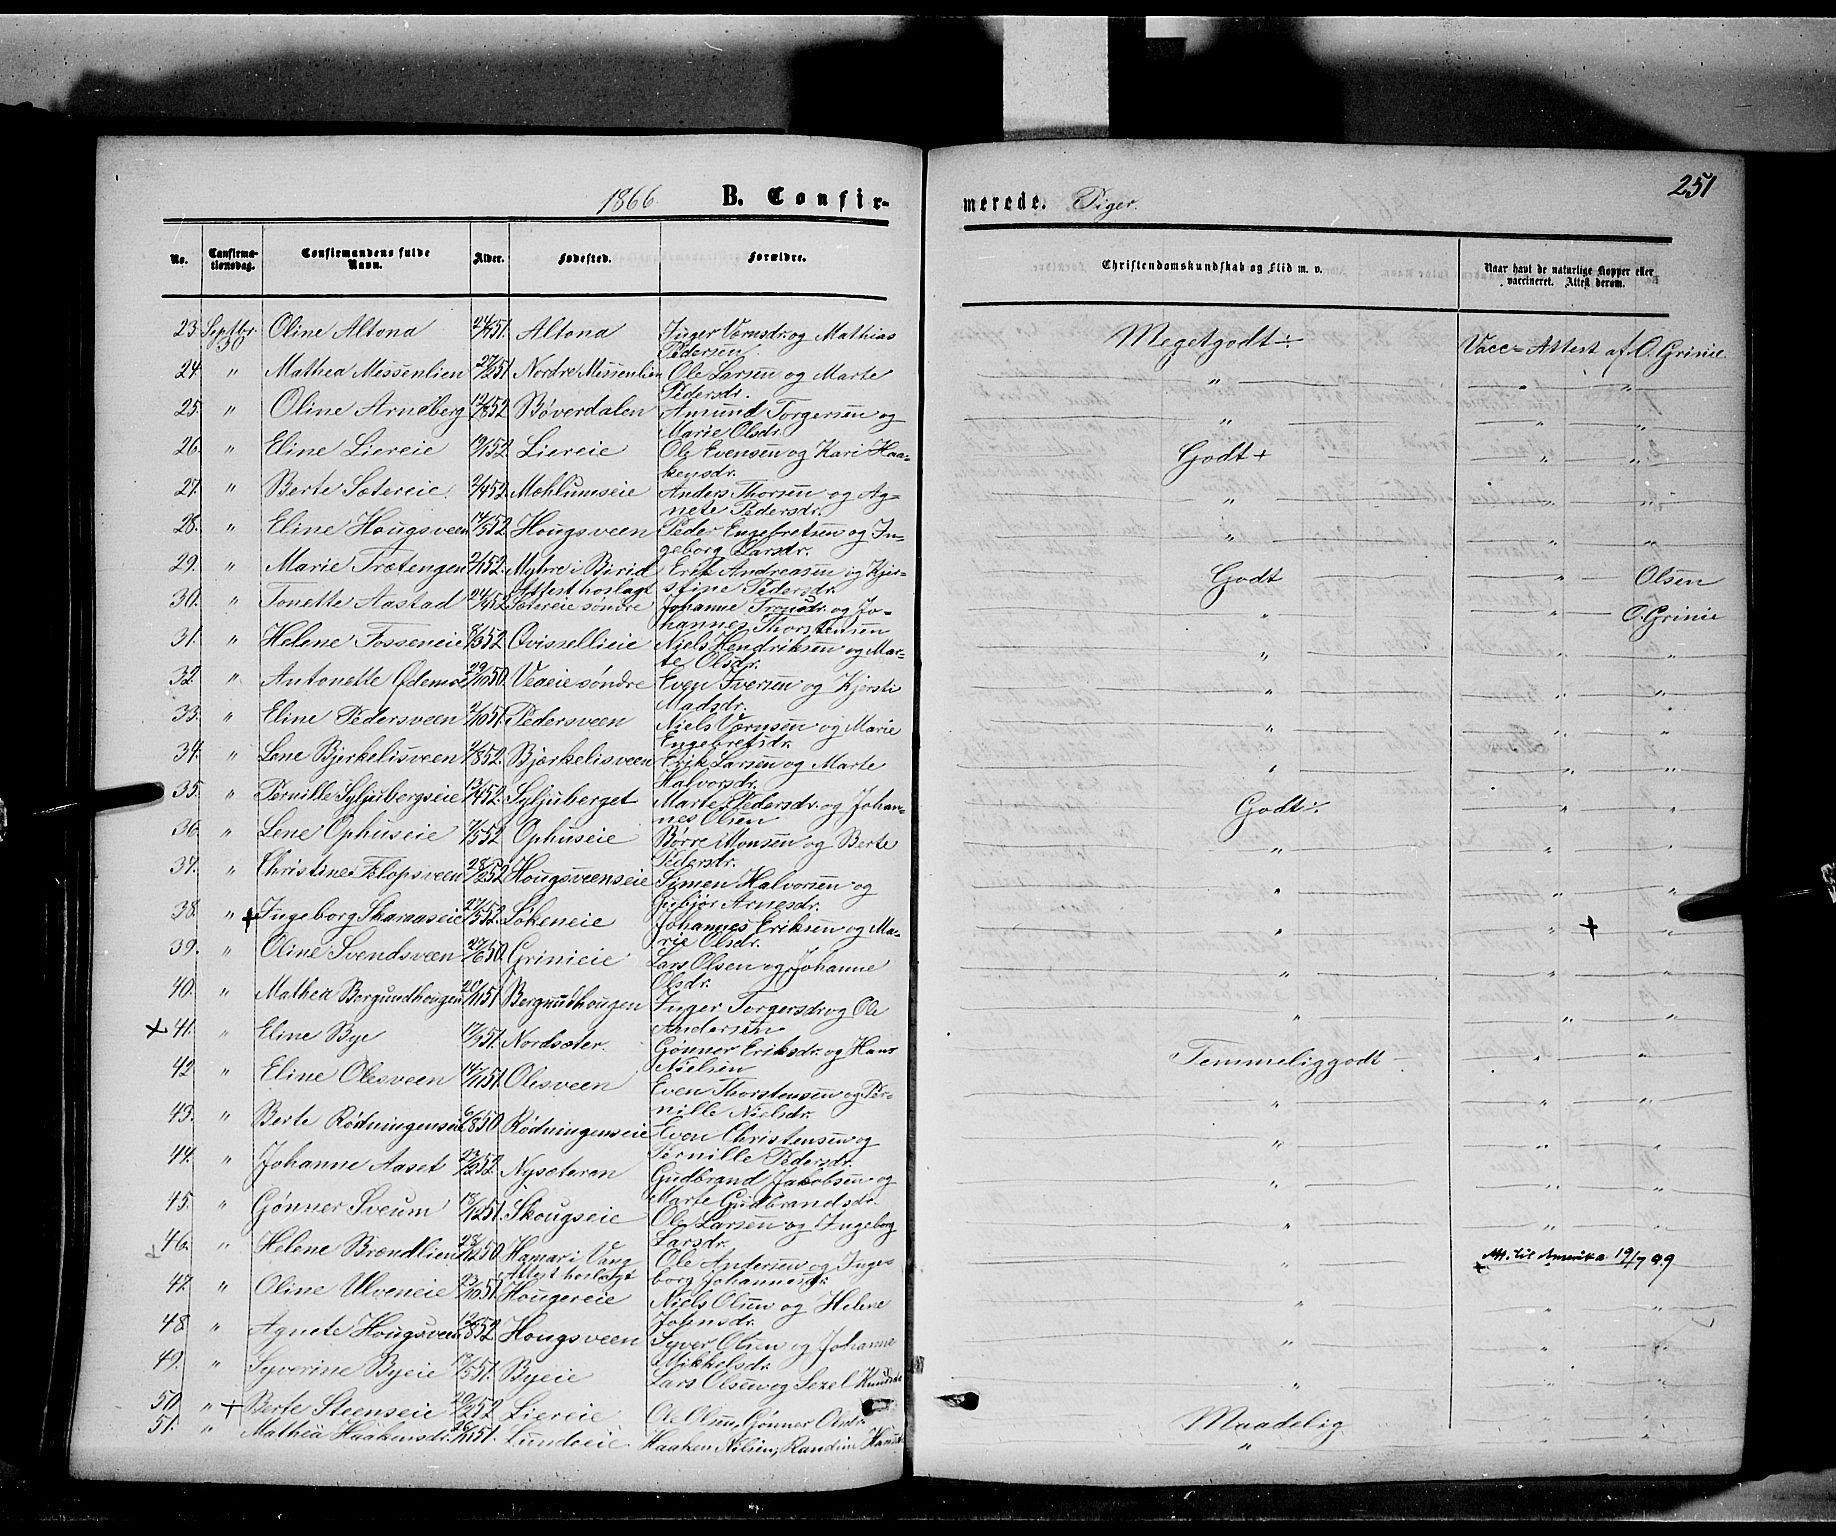 1866 B. Confir-
merede. Piger.
251
No. Confirma-tionsdag. Confirmandens fulde Navn. Alder. Fødested. Forældre. Christendomskundskab og Flid m. v. Naar havt de naturlige Kopper eller vaccineret. Attest derom.
23. Septbr. 30 Oline Altona 51. Altona Inger Vornsdr. og Mathias Pedersen Megetgodt÷ Vacc= Attest af O. Grinie
24. " Mathea Messenlien 51 Nordre Messenlien Ole Larsen og Marte Pedersdr. " " "
25. " Oline Arneberg 12/8 52 Bøverdalen Amund Torgersen og Marie Olsdr. " " "
26. " Eline Liereie 19/1 52 Liereie Ole Evensen og Kari Haa-kensdr. Godt + " "
27. " Berte Sætereie 2/4 52. Mæhlumseie Anders Thorsen og Ag-nete Pedersdr. " " "
28. " Eline Hougsveen 52. Hougsveen Peder Engebretsen og In-geborg Larsdr. " " "
29. " Marie Trætengen 2/1 52. Myhre i Birid Attest hoslagt Erik Andreasen og Kjer-stine Pedersdr. Godt " Olsen
30. " Tonette Aastad 52 Sætereie søndre Johanne Tronsdr. og Jo-hannes Thorstensen " " O. Grinie
31. " Helene Fosseneie 8/3 52 Qvisellieie Niels Hendriksen og Mar-te Olsdr. " " "
32 " Antonette Ødemo 29/10 50. Veaeie søndre Even Iversen og Kjersti Madsdr. " " "
33. " Eline Pedersveen 2/10 51. Pedersveen Niels Vornsen og Marie Engebretsdr. " " "
34. " Lene Bjerkelisveen 2/8 52. Bjærkelisveen Erik Larsen og Marte Halvorsdr. " " "
35. " Pernille Syljubergseie 13/4 52. Syljuberget Marte Pedersdr. og Johan-nes Olsen Godt ÷ " "
36. " Lene Ophuseie 7/5 52 Ophuseie Børre Monsen og Berte Pedersdr. " " "
37. " Christine Flopsveen 28/2 52 Hougsveenseie Simen Halvorsen og Gubjør Arnesdr. " " "
38. " + Ingeborg Skaraaseie 52. Løkeneie Johannes Eriksen og Ma-rie Olsdr. " " + "
39. " Oline Svendsveen 27/6 50. Grinieie Lars Olsen og Johanne Olsdr. " " "
40. " Mathea Borgundhougen 20/11 51 Borgundhougen Inger Torgersdr og Ole Andersen " " "
+ 41. " Eline Bye 51. Nordsæter. Gønner Eriksdr. og Hans Nielsen Temmeliggodt " "
42 " Eline Olesveen 14/11 51. Olisveen Even Thorstensen og Per-nille Nielsdr. " " "
43. " Berte Rødningenseie 6/8 50 Rødningenseie Even Christensen og Pernille Pedersdr. " " "
44. " Johanne Aaset 23/2 52. Nysæteren Gudbrand Jakobsen og Marte Gudbrandsdr. " " "
45. " Gønner Sveum 12/12 51. Skougseie Ole Larsen og Ingeborg Larsdr. " " "
46. " Helene Brændlien 28/12 50. Hamar i Vang Attest hoslagt Ole Andersen og Inge-borg Johannesdr. " Att. til Amerika 19/7 99
47. " Oline Ulveneie 23/10 51. Hougereie Niels Olsen og Helene Johnsdr. " " "
48. " Agnete Hougsveen 12/8 52 Hougsveen Syver Olsen og Johanne Mikkelsdr. " " "
49. " Syverine Byeie 51. Byeie Lars Olsen og Sezel Knudsdr " " "
50. " + Berte Steenseie 20/2 52 Liereie Ole Olsen, Gønner Olsdr. Maadelig " "
51. " Mathea Haakensdr. 51. Lundeie Haaken Nilsen, Randine " " "